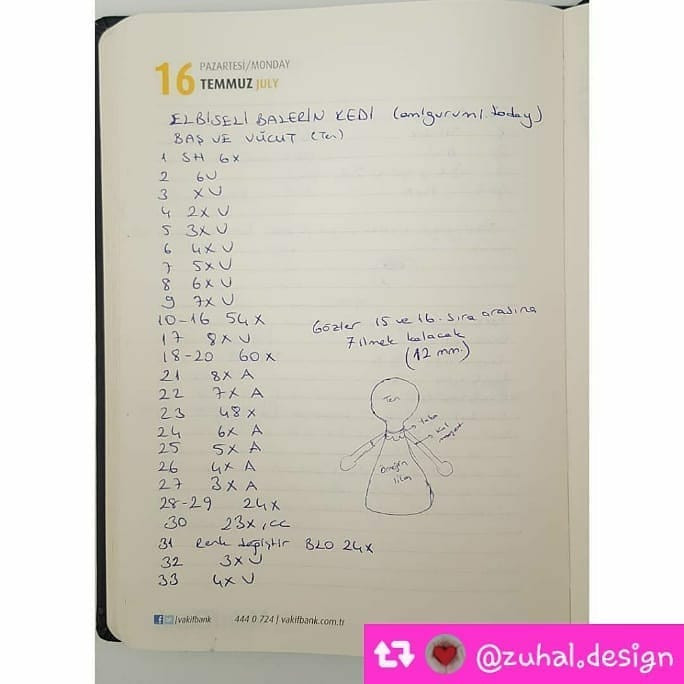 16 PAZARTESİ/MONDAY
TEMMUZ JULY
ELBİSELİ BALERİN KEDİ (amigurumi.today)
BAŞ VE VÜCUT (Ten)
1 SH 6X
2 6V
3 XV
4 2XV
5 3XV
6 4XV
7 5XV
8 6XV
9 7XV
10-16 54X
17 8XV
18-20 60X
21 8XA
22 7XA
23 48X
24 6XA
25 5XA
26 4XA
27 3XA
28-29 24X
30 23X, CC
31 Renk değiştir BLO 24X
32 3XV
33 4XV
Gözler 15 ve 16. sıra arasına
7 ilmek kalacak
(12 mm.)
Ten
kol
örneğin
lila
/vakifbank 444 0 724 | vakifbank.com.tr
@zuhal.design